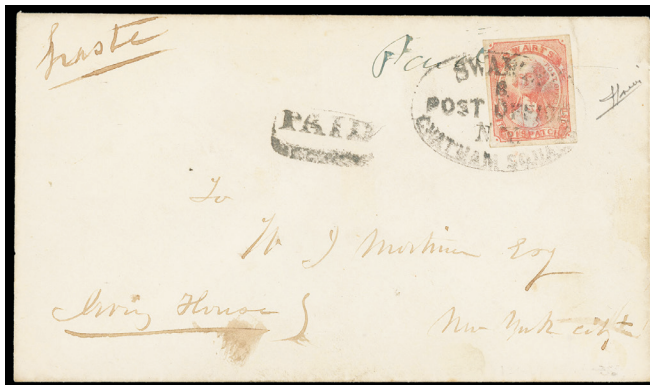 haste
Paid
SWARTS
8
POST OFFICE
N.Y.
CHATHAM SQUARE
SWARTS
DISPATCH
PAID
To
W J Mortimer Esq
Irving House
New York city